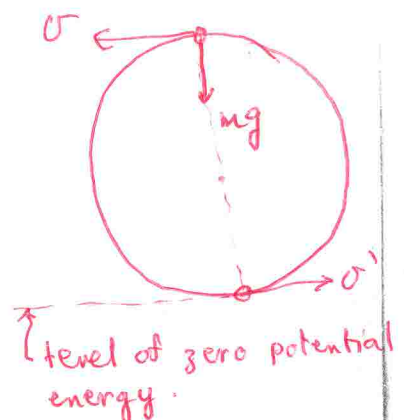 v
mg
v'
level of zero potential
energy.